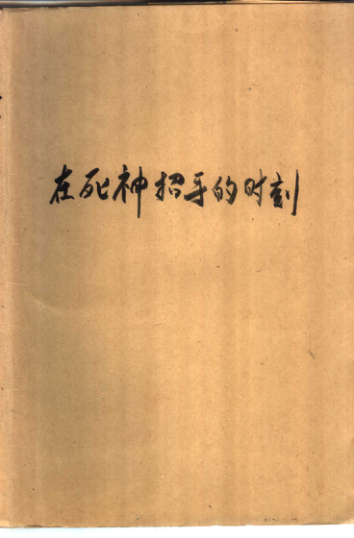 在死神招手的时刻